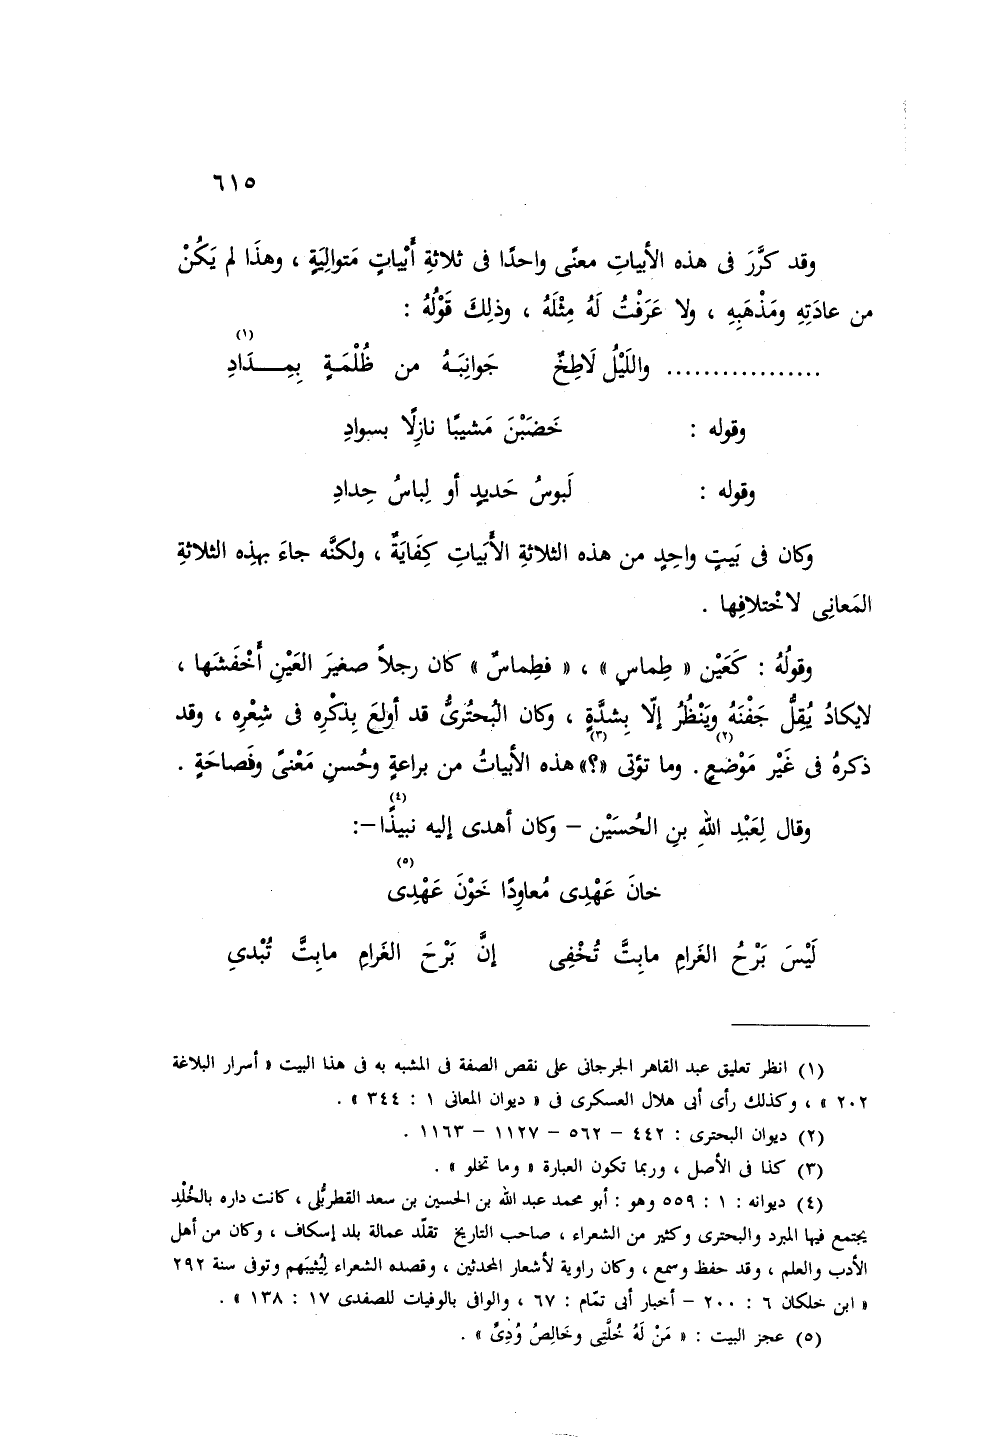 ٦١٥
وقد كرَّرَ فى هذه الأبياتِ معنًى واحدًا فى ثلاثةِ أَبْياتٍ مَتوالِيَةٍ ، وهذَا لم يَكُنْ
من عادَتِهِ ومَذْهَبِهِ ، ولا عَرَفْتُ لَهُ مِثْلَهُ ، وذلِكَ قَوْلُهُ :
................. واللَيْلُ لَاطِخٌ جَوانِبَهُ من ظُلْمَةٍ بِمِـــدَادِ (١)
وقوله : خَضَبْنَ مَشيبًا نازِلًا بسوادِ
وقوله : لَبوسُ حَديدٍ أو لِباسُ حِدادِ
وكان فى بَيتٍ واحِدٍ من هذه الثلاثةِ الأَبَياتِ كِفَايَةٌ ، ولكنَّه جاءَ بهذِه الثلاثةِ
المَعانِى لاخْتلافِها .
وقولُهُ : كَعَيْن « طِماسِ » ، « فطِماسٌ » كان رجلاً صغيرَ العَيْنِ أَخْفَشَها ،
لايكادُ يُقِلُّ جَفْنَهُ ويَنْظُرُ إلّا بِشدَّةٍ ، وكان البُحتُرىُّ قد أولعَ بِذكْرِه فى شِعْرِه ، وقد
ذكرهُ فى غَيْر مَوْضعٍ (٢). وما تؤتى «؟» (٣) هذه الأبياتُ من براعةٍ وحُسنِ مَعْنىً وفَصاحَةٍ .
وقال لِعَبْدِ اللهِ بنِ الحُسَيْن – وكان أهدى إليه نبيذًا (٤)–:
خانَ عَهْدِى مُعاوِدًا خَوْنَ عَهْدِى (٥)
لَيْسَ بَرْحُ الغَرامِ مابِتَّ تُخْفِى إنَّ بَرْحَ الغَرامِ مابِتَّ تُبْدىِ
(١) انظر تعليق عبد القاهر الجرجانى على نقص الصفة فى المشبه به فى هذا البيت « أسرار البلاغة
٢٠٢ » ، وكذلك رأى أبى هلال العسكرى فى « ديوان المعانى ١ : ٣٤٤ » .
(٢) ديوان البحترى : ٤٤٢ – ٥٦٢ – ١١٢٧ – ١١٦٣ .
(٣) كذا فى الأصل ، وربما تكون العبارة « وما تخلو » .
(٤) ديوانه : ١ : ٥٥٩ وهو : أبو محمد عبد الله بن الحسين بن سعد القطربُّلى ، كانت داره بالخُلْدِ
يجتمع فيها المبرد والبحترى وكثير من الشعراء ، صاحب التاريخ تقلّد عمالة بلد إسكاف ، وكان من أهل
الأدب والعلم ، وقد حفظ وسمع ، وكان راوية لأشعار المحدثين ، وقصده الشعراء لِيُثيبَهم وتوفى سنة ٢٩٢
« ابن خلكان ٦ : ٢٠٠ – أخبار أبى تمّام : ٦٧ ، والوافى بالوفيات للصفدى ١٧ : ١٣٨ » .
(٥) عجز البيت : « مَنْ لَهُ خُلَّتِى وخَالِصُ وُدِىّ » .